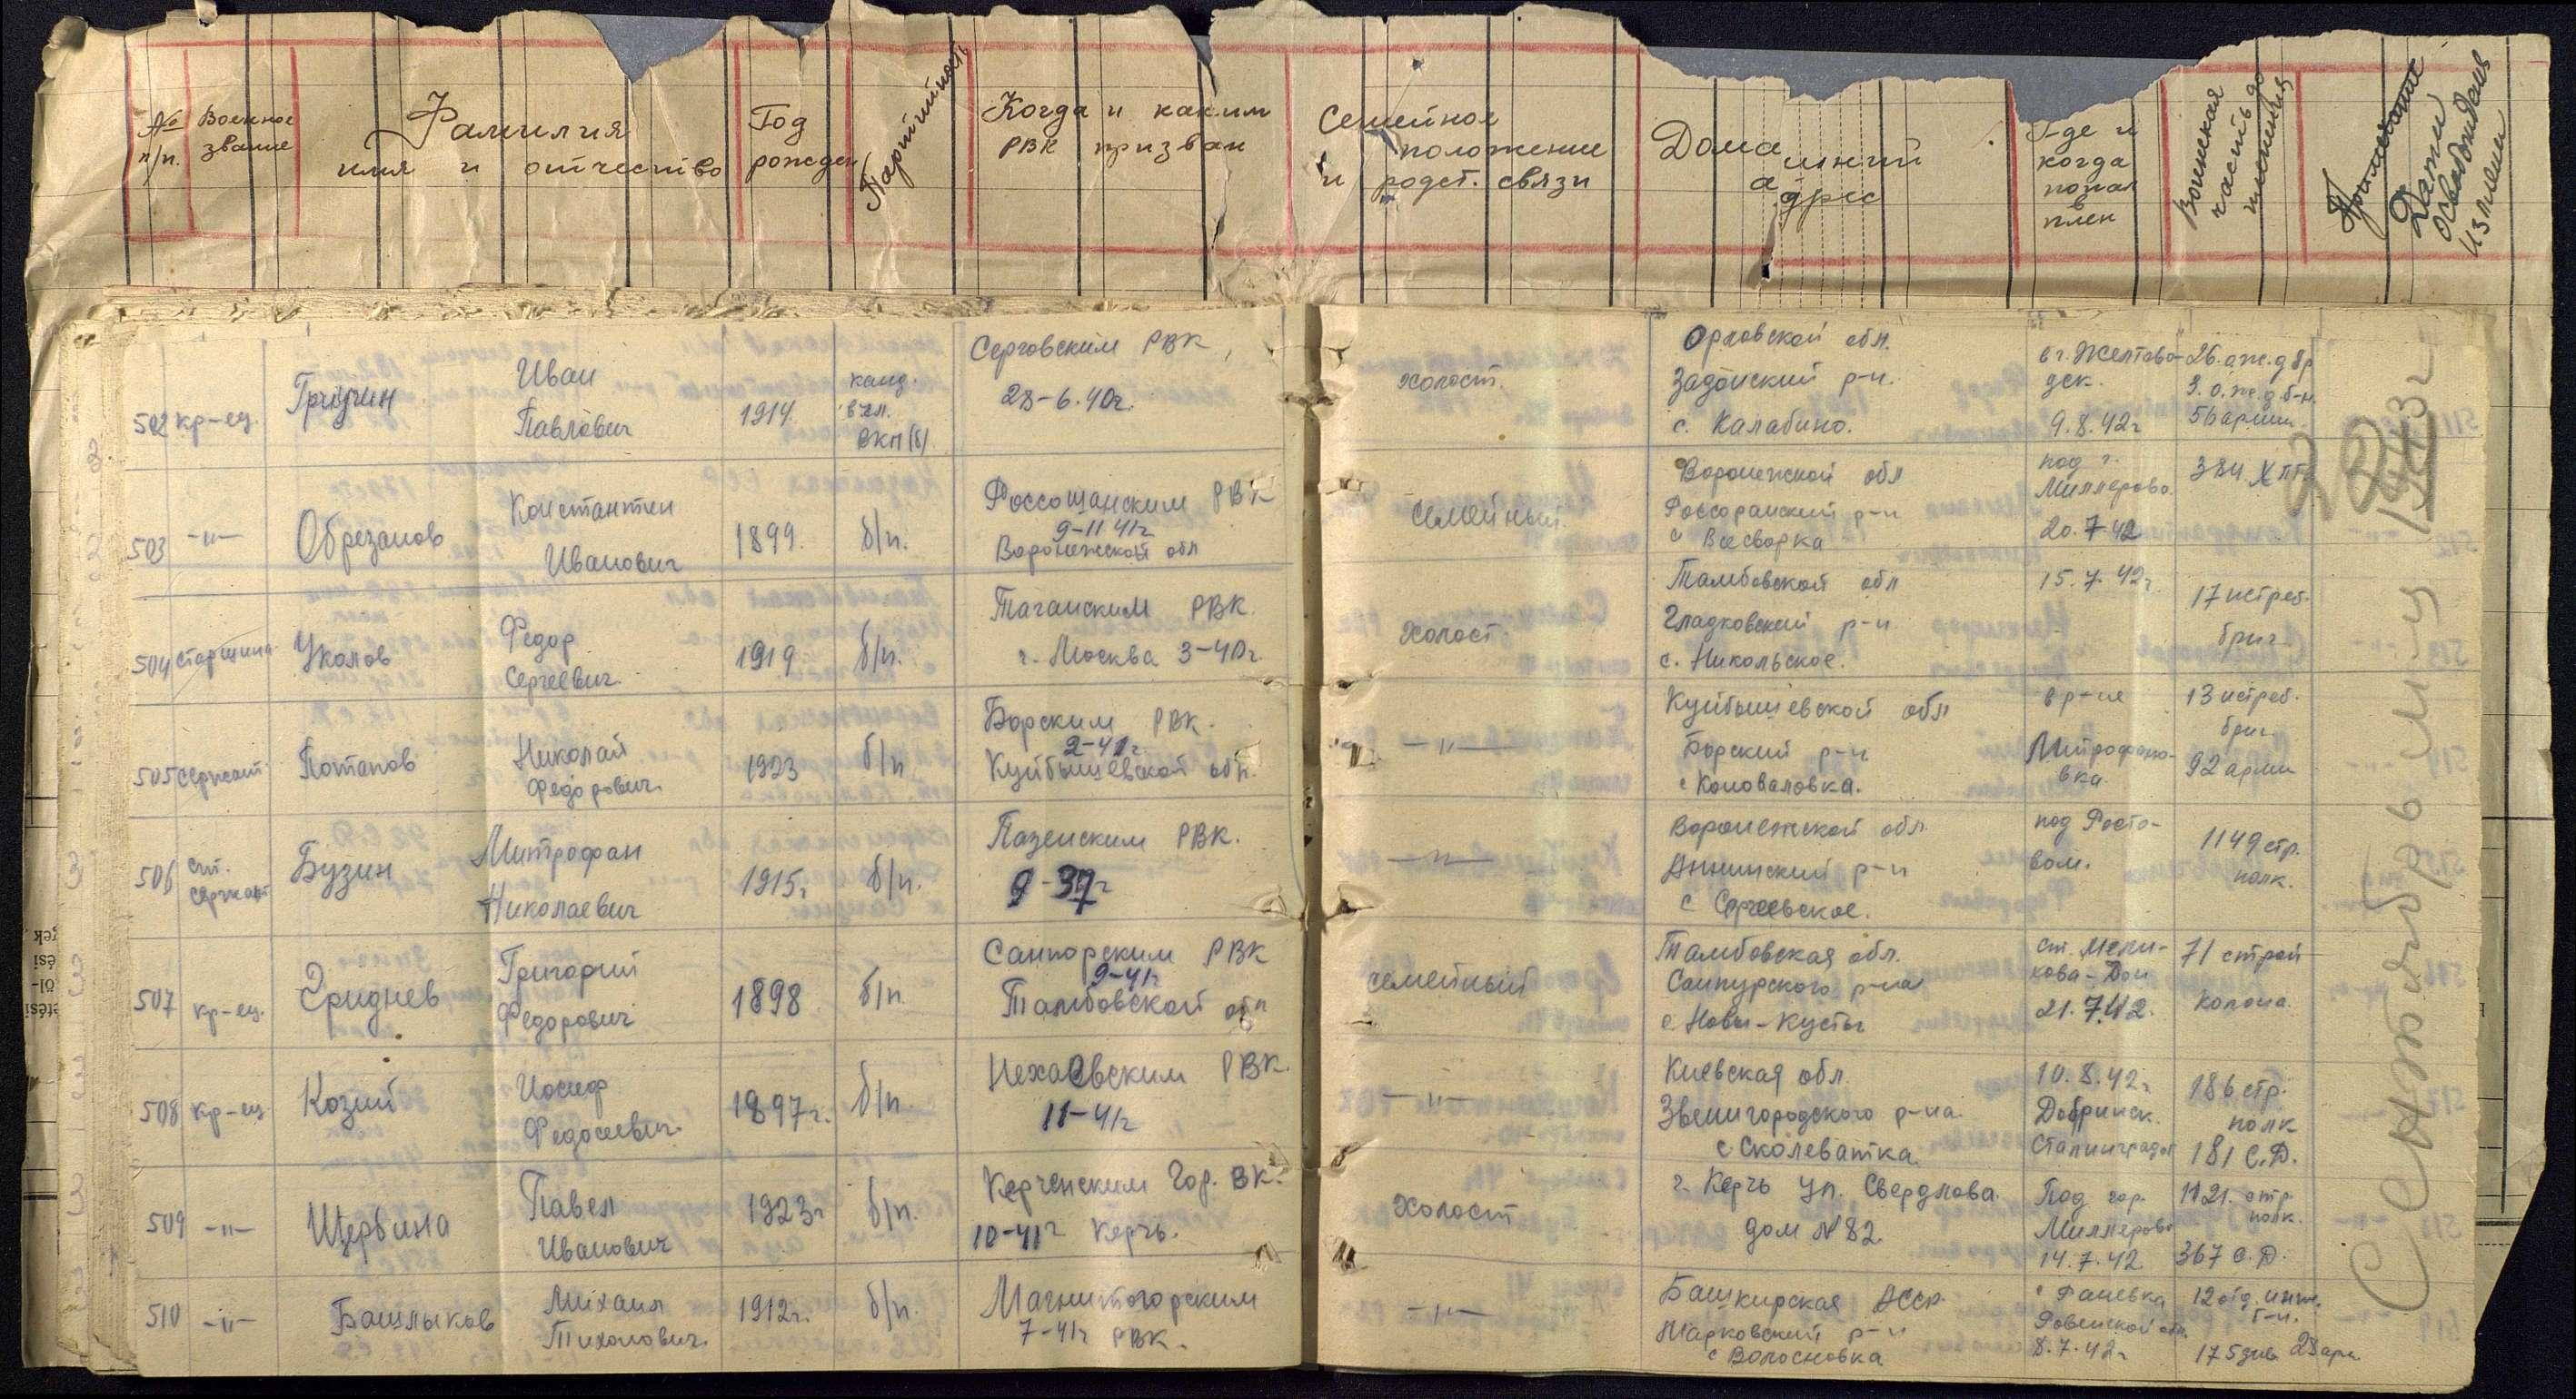 № п/п.
Военное звание
Фамилия имя и отчество
Год рожден
Партийность
Когда и каким РВК призван
Семейное положение и родст. связи
Домашний адрес
Где и когда попал в плен
Воинская часть до пленения
Примечание
Дата освобождения из плена
502 кр-ец.
Иван
Павлович
1914
канд.
в чл.
ВКП(б)
РВК
28-6.40г.
холост.
Орловской обл.
Задонский р-н.
с. Калабино.
в г. Желтово-
дск.
9.8.42г
26.о.ж.д бр
3.о.ж.д б-н.
56 армии
503 -"-
Обрезанов
Константин
Иванович
1899.
б/п.
Россошанским РВК
9-11 41г
Воронежской обл
семейный.
Воронежской обл
р-н
под г.
Миллерово.
20.7-42
504 старшина
Уколов
Федор
Сергеевич
1919
б/п.
Таганским РВК.
г. Москва 3-40г.
холост.
Тамбовской обл
Гладковский р-н
с. Никольское.
15.7.42г.
17 истреб.
бриг
505 сержант
Потапов
Николай
Федорович.
1923
б/п
Борским РВК.
2-41г.
Куйбышевской обл.
-"-
Куйбышевской обл
Борский р-н
с Коноваловка.
в р-не
Митрофано-
вка
13 истреб.
бриг
92 арми
506 ст.
сержант
Бузин
Митрофан
Николаевич
1915г
б/п.
РВК.
9-39г
-"-
Воронежской обл
Аннинский р-н
с Сергеевское.
под Росто-
вом.
1149 стр.
полк.
507 кр-ец.
Григорий
Федорович
1898
б/п.
Сампорским РВК
9-41г
Тамбовской обл
семейный
Тамбовская обл.
Сампурского р-на
с. Новы-Кусты
21.7.42.
71 строй
колона.
508 кр-ец
Козий
Иосиф
Федосеевич.
1897г.
б/п.
Нехаевским РВК.
11-41г
-"-
Киевская обл.
Звенигородского р-на.
с. Сколеватка.
10.8.42г
Добринск.
186 стр.
полк
181 С.Д.
509 -"-
Щербина
Павел
Иванович
1923г
б/п.
Керченским Гор. ВК.
10-41г Керчь.
Холост
г. Керчь ул. Свердлова.
дом №82.
Под гор.
Миллерово
14.7.42
1121. стр
полк.
367 С.Д.
510 -"-
Башлыков
Михаил
Тихонович.
1912г.
б/п.
Магнитогорским
7-41г РВК.
-"-
Башкирская АССР
р-н
с Волосновка
8.7.42г
12 отд. инж.
б-н.
28 арм
Сентябрь м-ц 1943 г